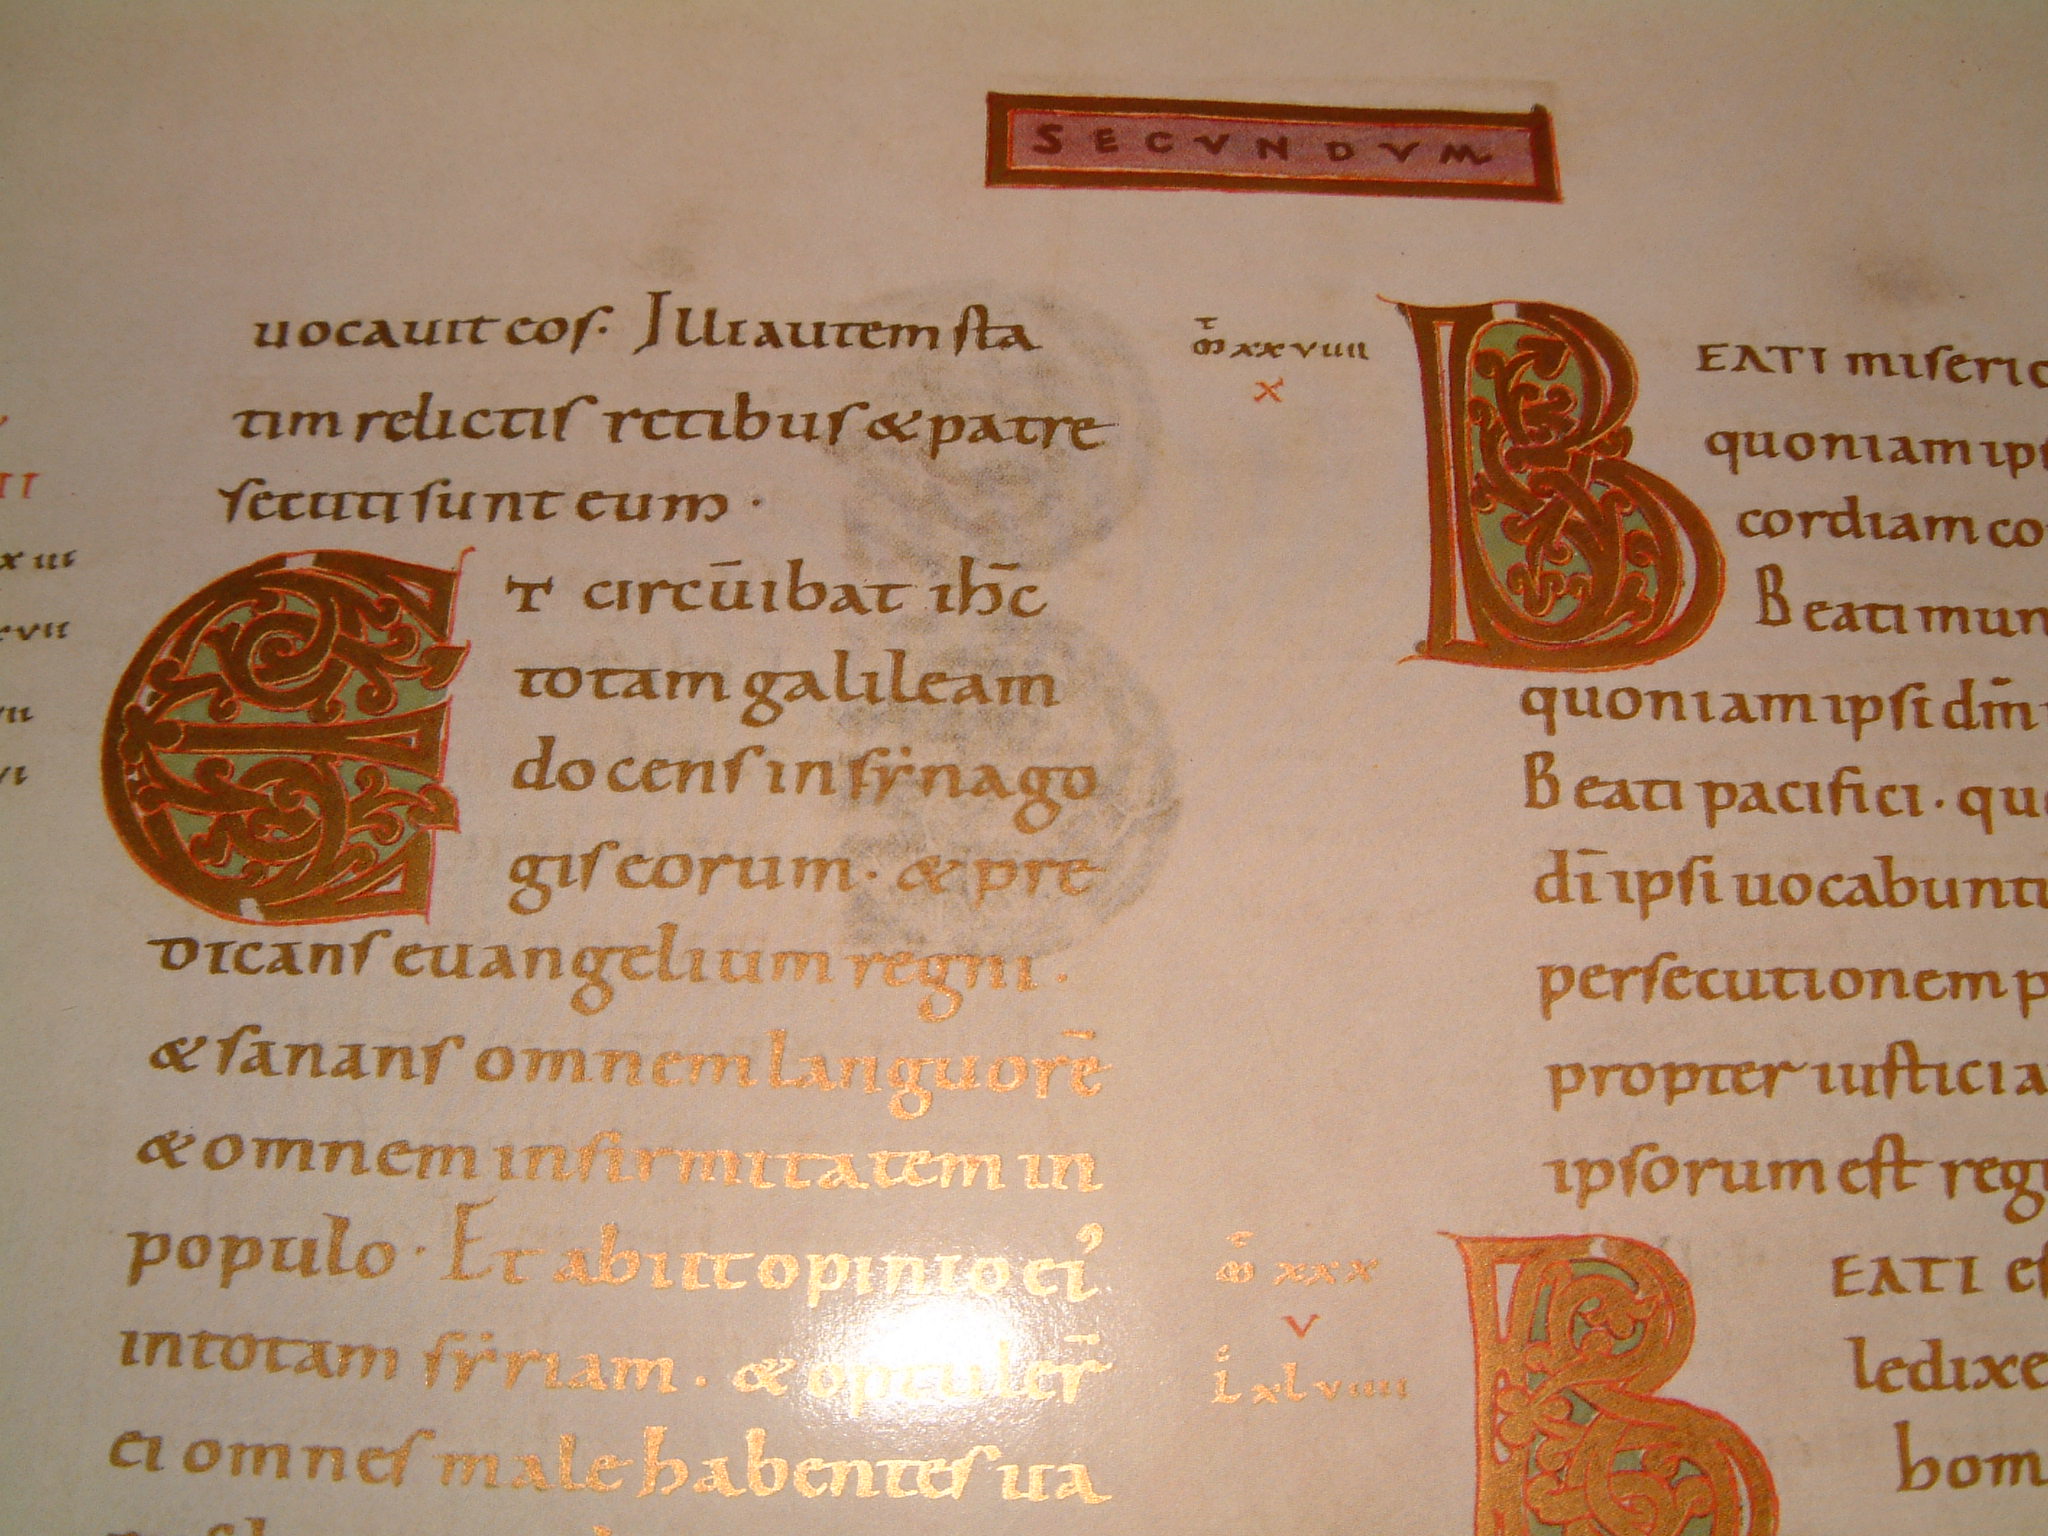 SECVNDVM
uocauit eos. Illi autem sta
tim relictis retibus & patre
secuti sunt eum.
ET circūibat ih̄c
totam galileam
docens in sẏnago
gis eorum. & pre
dicans euangelium regni.
& sanans omnem languorē
& omnem infirmitatem in
populo. Et abiit opinio ei'
in totam sẏriam. & optuler̄
ei omnes male habentes ua
m̄t xxviiii
x
BEATI miseric
quoniam ips
cordiam co
Beati mun
quoniam ipsi dm̄
Beati pacifici. quo
dī ipsi uocabunt
persecutionem p
propter iusticia
ipsorum est regn
m̄t xxx
v
L xlviiii
BEATI es
ledixe
hom